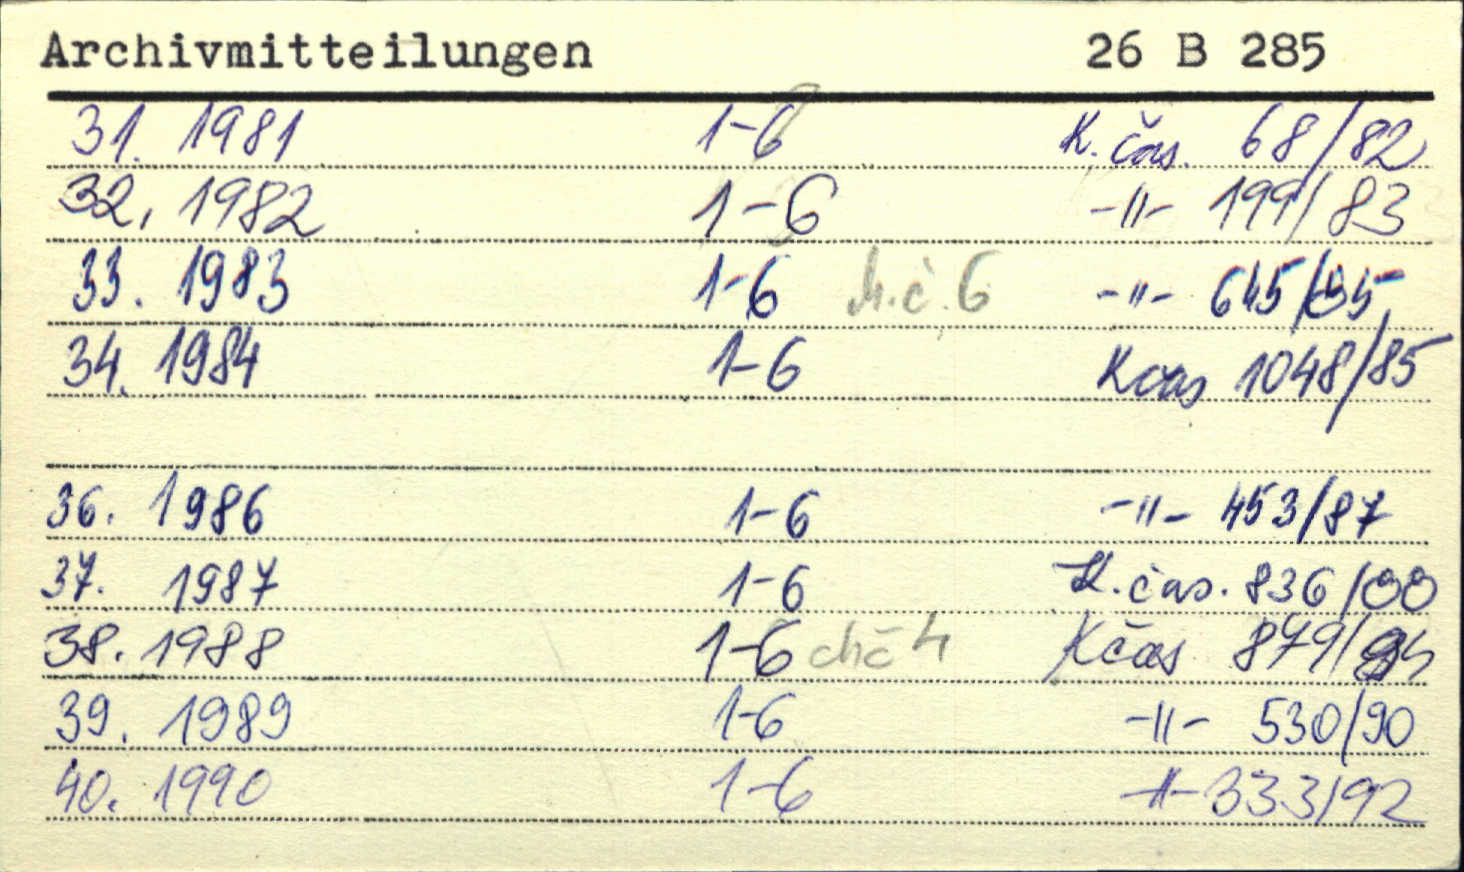 Archivmitteilungen 26 B 285
31. 1981 1-6 K. čas. 68/82
32. 1982 1-6 -"- 199/83
33. 1983 1-6 ch.č. 6 -"- 645/
34. 1984 1-6 Kčas 1048/85
36. 1986 1-6 -"- 453/87
37. 1987 1-6 K. čas. 836/88
38. 1988 1-6 chč 4 Kčas 879/
39. 1989 1-6 -"- 530/90
40. 1990 1-6 -"- 333/92